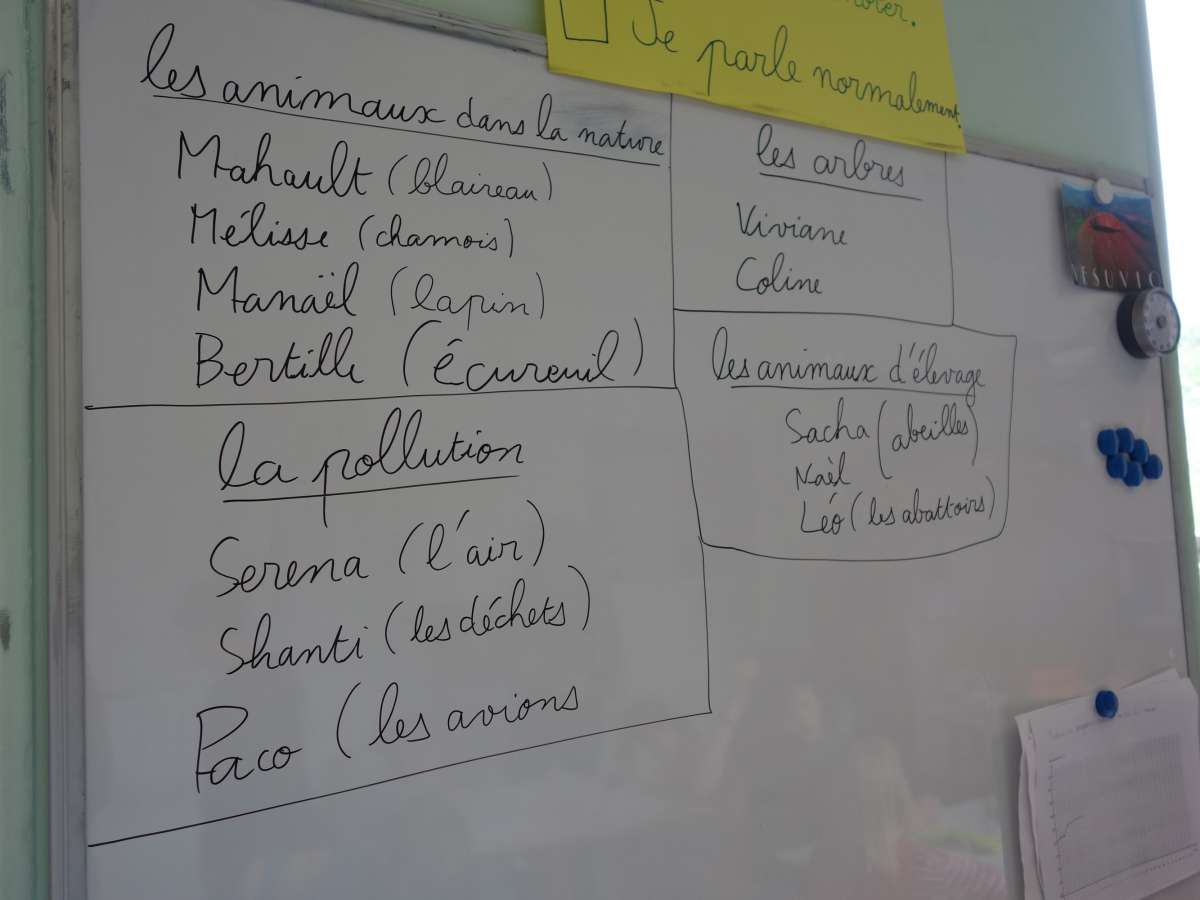 Je parle normalement.
les animaux dans la nature
Mahault (blaireau)
Mélisse (chamois)
Manaël (lapin)
Bertille (écureuil)
les arbres
Viviane
Coline
les animaux d'élevage
Sacha (abeilles)
Naël
Léo (les abattoirs)
la pollution
Serena (l'air)
Shanti (les déchets)
Paco (les avions
VESUVIO